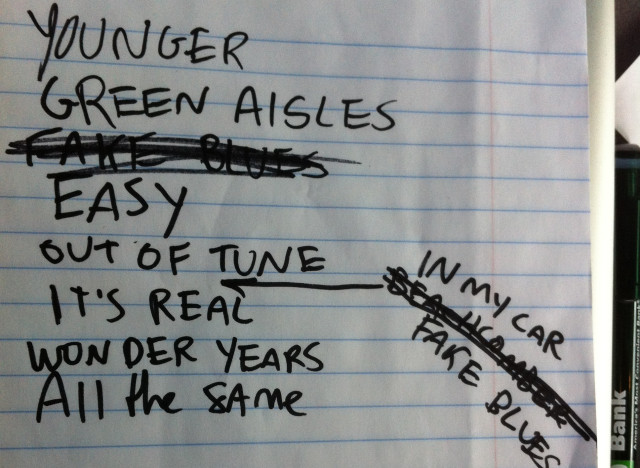 YOUNGER
GREEN AISLES
FAKE BLUES
EASY
OUT OF TUNE
IT'S REAL
WONDER YEARS
All the SAME
IN MY CAR
BEACHCOMBER
FAKE BLUES
Bank